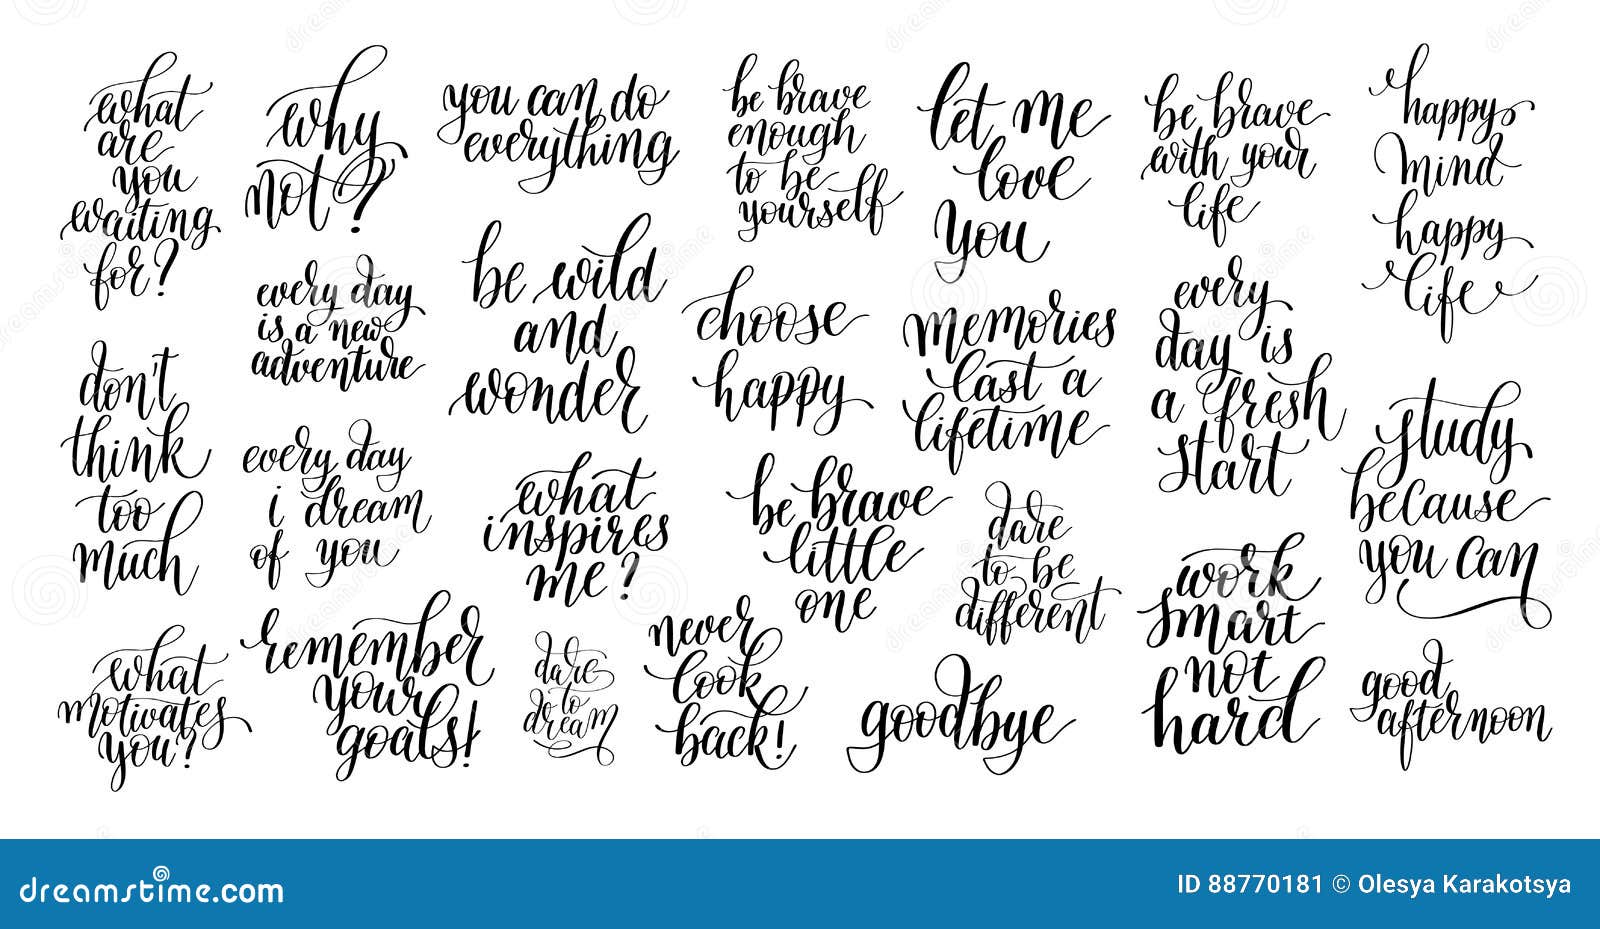 what
are
you
waiting
for?
why
not?
you can do
everything
be brave
enough
to be
yourself
let me
love
you
be brave
with your
life
happy
mind
happy
life
every day
is a new
adventure
be wild
and
wonder
choose
happy
memories
last a
lifetime
every
day is
a fresh
start
don't
think
too
much
every day
i dream
of you
what
inspires
me?
be brave
little
one
dare
to be
different
study
because
you can
work
smart
not
hard
what
motivates
you?
remember
your
goals!
dare
to
dream
never
look
back!
goodbye
good
afternoon
dreamstime.com
ID 88770181 © Olesya Karakotsya